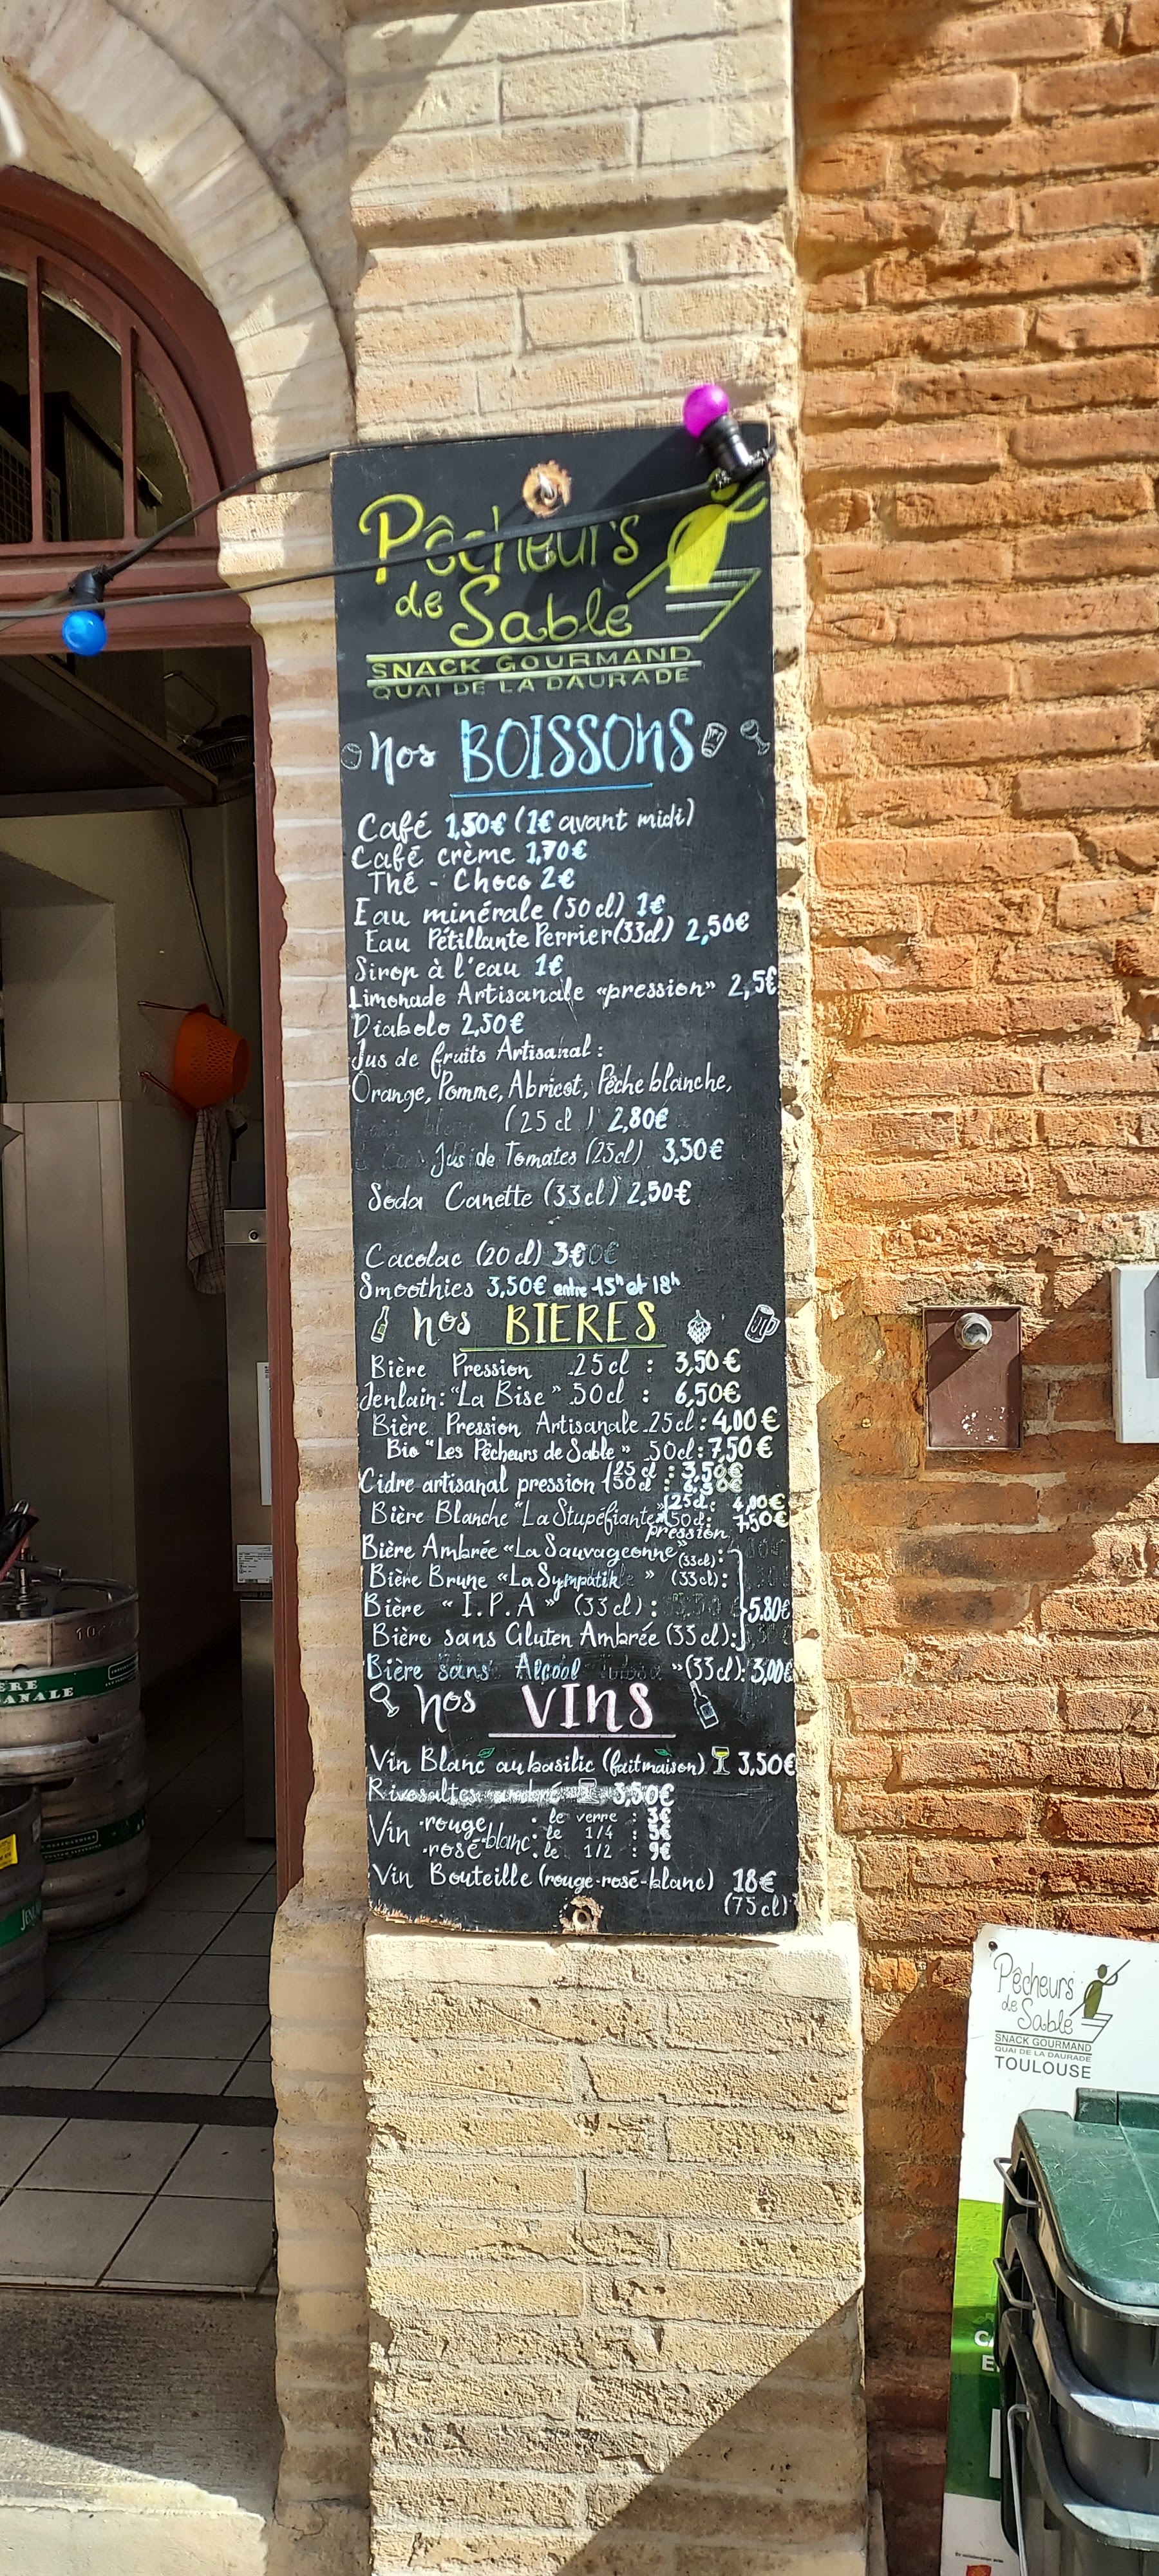 Pêcheurs
de Sable
SNACK GOURMAND
QUAI DE LA DAURADE
Nos BOISSONS
Café 1,50€ (1€ avant midi)
Café crème 1,70€
Thé - Choco 2€
Eau minérale (50cl) 1€
Eau Pétillante Perrier (33cl) 2,50€
Sirop à l'eau 1€
Limonade Artisanale «pression» 2,5€
Diabolo 2,50€
Jus de fruits Artisanal :
Orange, Pomme, Abricot, Pêche blanche,
(25 cl ) 2,80€
Jus de Tomates (25cl) 3,50€
Soda Canette (33cl) 2,50€
Cacolac (20 cl) 3€
Smoothies 3,50€ entre 15h et 18h
Nos BIERES
Bière Pression 25cl : 3,50€
Jenlain: "La Bise" 50cl : 6,50€
Bière Pression Artisanale 25cl : 4,00€
Bio "Les Pêcheurs de Sable" 50cl : 7,50€
Cidre artisanal pression 25cl : 3,50€
50cl : 6,50€
Bière Blanche "La Stupéfiante" 25cl : 4,00€
50cl : 7,50€
pression
Bière Ambrée «La Sauvageonne» (33cl) :
Bière Brune «La Sympatik » (33cl) :
Bière "I.P.A" (33cl) : 5.80€
Bière sans Gluten Ambrée (33cl) :
Bière sans Alcool »(33cl) : 3,00€
Nos VINS
Vin Blanc au basilic (fait maison) 3,50€
Rivesaltes ambré 3,50€
Vin rouge le verre : 3€
-blanc : le 1/4 : 5€
rosé le 1/2 : 9€
Vin Bouteille (rouge-rosé-blanc) 18€
(75cl)
Pêcheurs
de Sable
SNACK GOURMAND
QUAI DE LA DAURADE
TOULOUSE